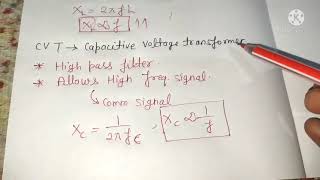 X_L = 2πfL
X_L ∝ f ↑↑
CVT → Capacitive Voltage transformer
* High pass filter.
* Allows High freq. signal.
↳ Comm signal
X_C = 1/2πfC , X_C ∝ 1/f